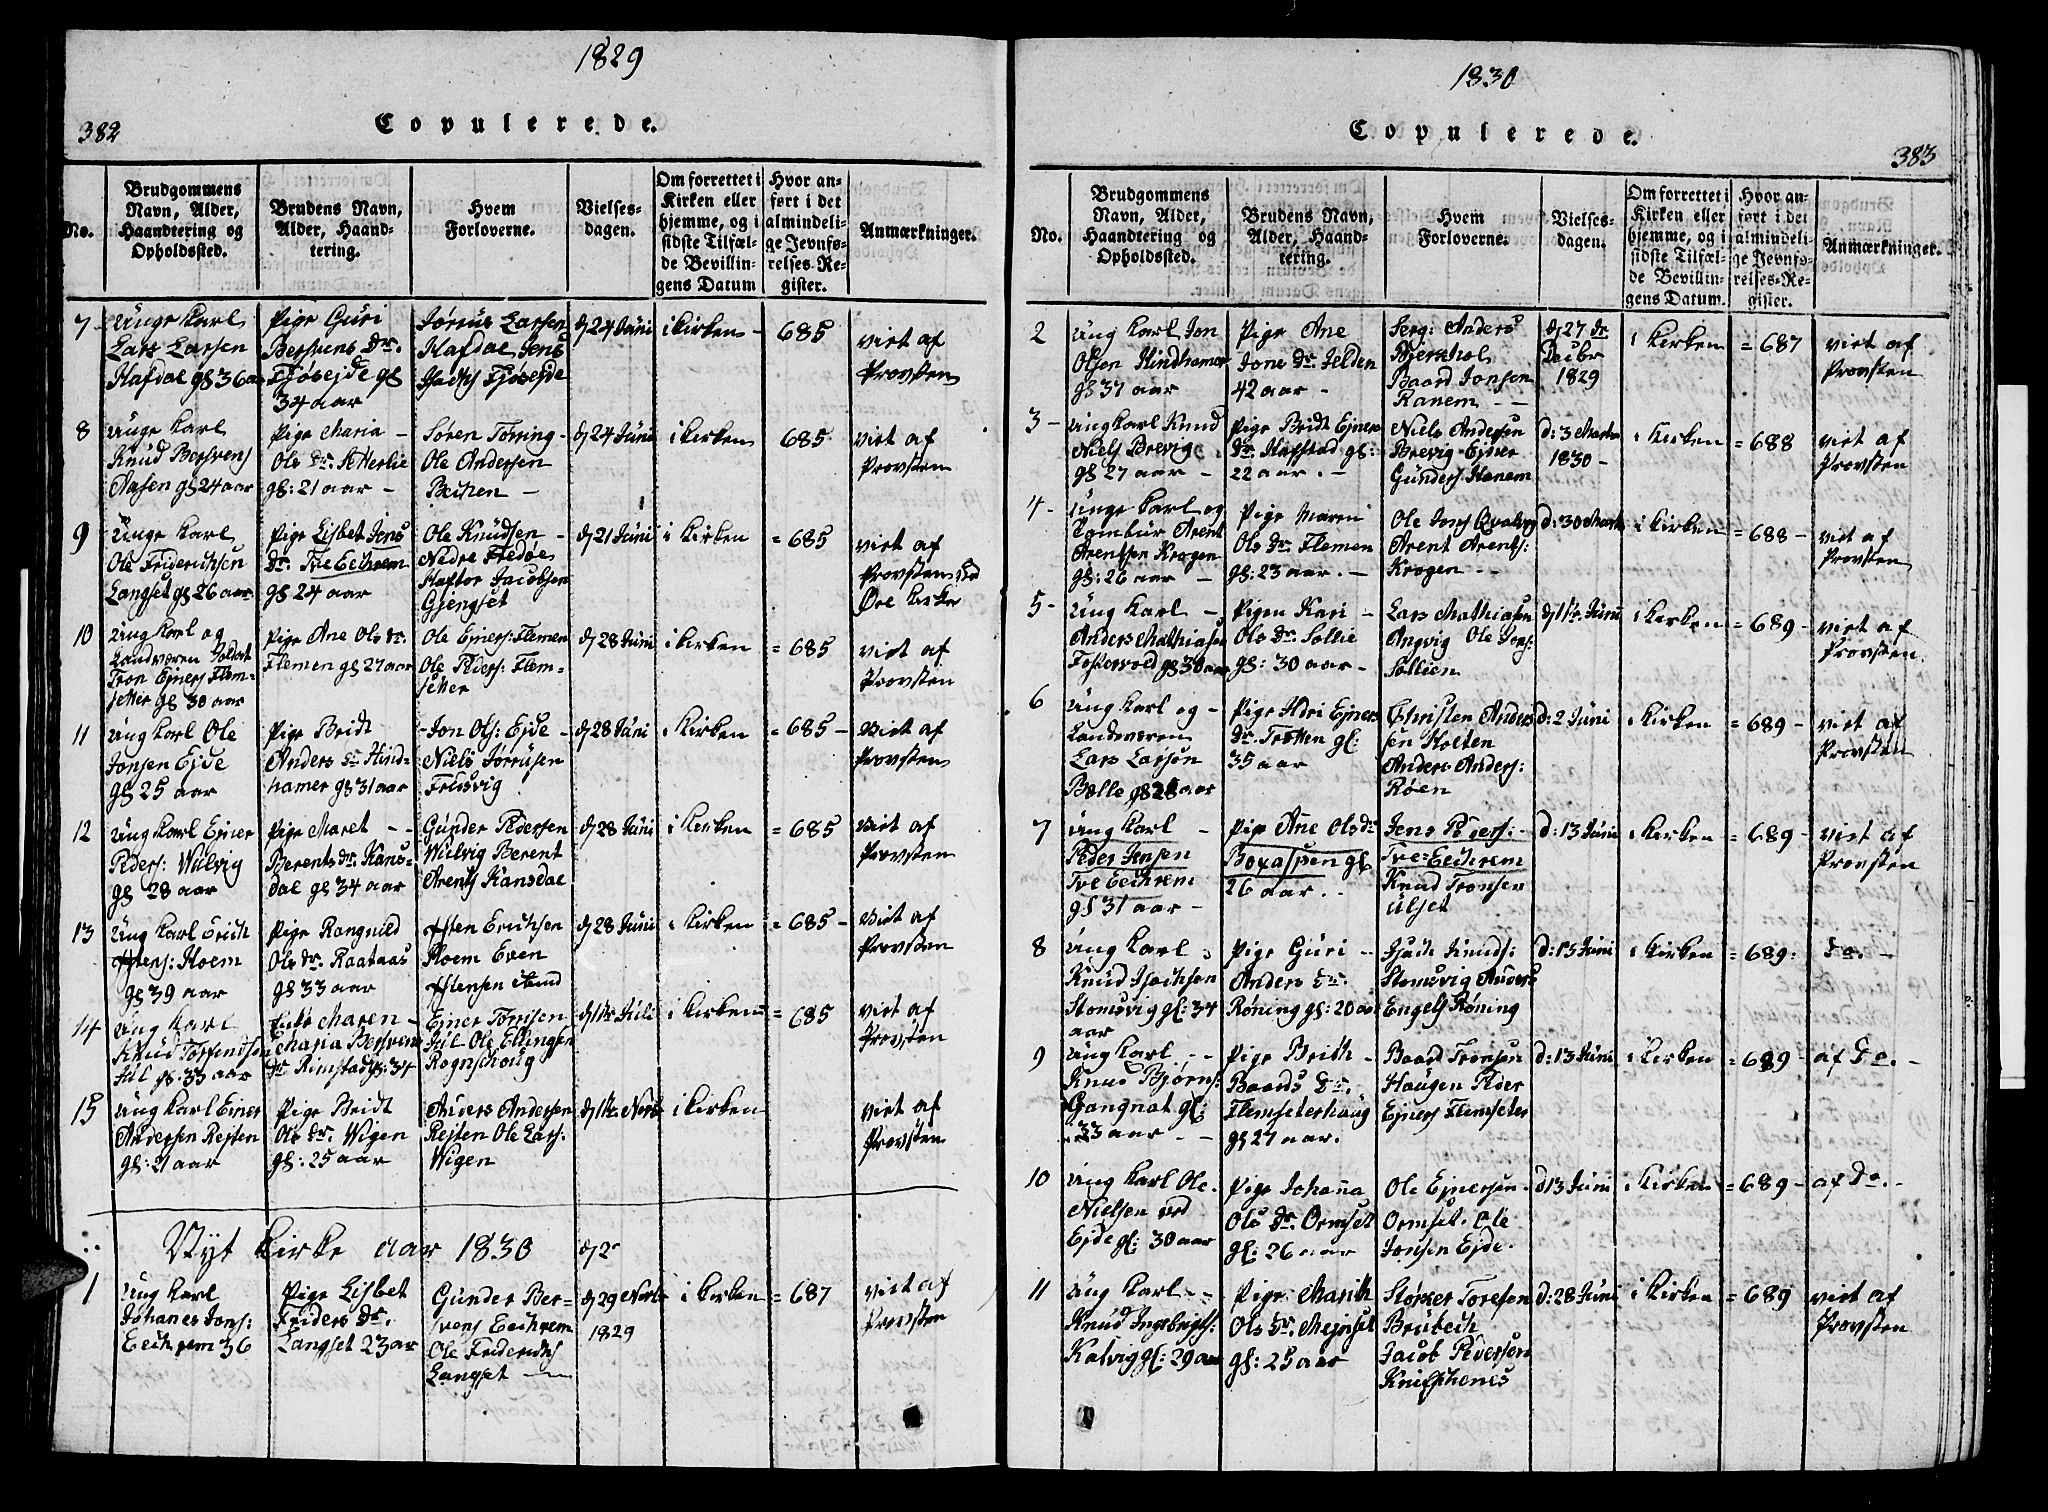 1829
382
Copulerede.
No.
Brudgommens
Navn, Alder,
Haandtering og
Opholdssted.
Brudens Navn,
Alder, Haand-
tering.
Hvem
Forloverne.
Vielses-
dagen.
Om forrettet i
Kirken eller
hjemme, og i
sidste Tilfæl-
de Bevillin-
gens Datum
Hvor an-
ført i det
almindeli-
ge Jevnfø-
relses-Re-
gister.
Anmærkninger.
7 Unge Karl
Lars Larsen
Hafdal gl 36 aar
Pige Guri
Bersvens Dr.
Fjøsejde gl
34 aar
Larsen
Hafdal Jens
Fjøsejde
24 Juni
i Kirken
685
viet af
Provsten
8 Unge Karl
Knud Bersvens
Aasen gl 24 aar
Pige Maria
Ols Dr.
gl: 21 aar
Søren Tørring
Ole Andersen
24 Juni
i Kirken
685
viet af
Provsten
9 Unge Karl
Ole Friderichsen
Langset gl 26 aar
Pige Lisbet Jens
Dr. Tve Eechrem
gl 24 aar
Ole Knudsen
Nedre Fredøe
Haftor Jacobsen
Gjengset
21 Juni
i Kirken
= 685
viet af
Provsten
Øre Kirke
10 Ung Karl og
Landværn Soldat
Tron Ejners Flem-
setter gl 30 aar
Pige Ane Ols Dr.
Flemen gl 27 aar
Ole Ejners: Flemen
Ole Peders: Flem-
setter
28 Juni
i Kirken
= 685
viet af
Provsten
11 Ung Karl Ole
Jonsen Ejde
gl 25 aar
Pige Bridt
Anders Dr Hind-
hamer gl 31 aar
Jon Ols: Ejde
Niels
Fredsvig
28 Juni
i Kirken
= 685
Viet af
Provsten
12 Ung Karl Ejner
Peders: Wulvig
gl 28 aar
Pige Maret
Berents Dr. Kans-
dal gl 34 aar
Gunder Pedersen
Wulvig Berent
Arents Kansdal
28 Juni
i Kirken
= 685
Viet af
Provsten
13 Ung Karl Erich
Estens: Hoem
gl 39 aar
Pige Rangnild
Ols Dr. Raataas
gl 33 aar
Esten Erichsen
Hoem Even
Estensen
28 Juni
i Kirken
= 685
Viet af
Provsten
14 Ung Karl
Knud
gl. 33 aar
Enke Maren
Maria Bersvens
Dr Rimstad gl: 34
Ejner
Ole Ellingsen
Rognschoug
Juli
i Kirken
= 685
viet af
Provsten
15 Ung Karl Ejner
Andersen Rejten
gl: 21 aar
Pige Bridt
Ols Dr. Wigen
gl: 25 aar
Anders Andersen
Rejten Ole Lars:
Wigen
i Kirken
viet af
Provsten
Nyt Kirke aar 1830
1 Ung Karl
Johanes Jons:
Eechrem 36
Pige Lisbet
Friders Dr.
Langset 23 aar
Gunder Ber-
svens Eechrem
Ole Friderichs
Langset
29
1829
i Kirken
= 687
viet af
Provsten
1830
383
Copulerede.
No.
Brudgommens
Navn, Alder,
Haandtering og
Opholdssted.
Brudens Navn,
Alder, Haand-
tering.
Hvem
Forloverne.
Vielses-
dagen.
Om forrettet i
Kirken eller
hjemme, og i
sidste Tilfæl-
de Bevillin-
gens Datum.
Hvor an-
ført i det
almindeli-
ge Jevnfø-
relses-Re-
gister.
Anmærkninger.
2 Ung Karl Jon
Olsen Hindhamer
gl 37 aar
Pige Ane
Jons Dr. Jelden
42 aar
Serg: Anders
Baard Jonsen
Ranem
27
1829
i Kirken
= 687
viet af
Provsten
3 Ung Karl Knud
Niels Brevig
gl 27 aar
Pige Bridt Ejners
Dr. Hafstad gl:
22 aar
Niels Andersen
Brevig Ejner
Gunders: Hanem
d: 3 Marts
1830
i Kirken
= 688
viet af
Provsten
4 Unge Karl og
Tambur Arent
Arentsen Krogen
gl: 26 aar
Pige Maren
Ols Dr. Flemen
gl: 23 aar.
Ole Jons
Arent Arents:
Krogen
d: 30 Marts
i Kirken
= 688
viet af
Provsten
5 Ung Karl
Anders Mathiasen
gl 30 aar
Pigen Kari
Ols Dr. Sollie
gl: 30 aar
Lars Mathiasen
Angvig Ole
Sollien
Juni
i Kirken
= 689
viet af
Provsten.
6 Ung Karl og
Landværn
Lars Larsen
Bolle gl 28 aar
Pige Ejners
Dr. Trøtten gl:
35 aar
Christen Anders
sen Holten
Anders Anders:
Røen
d: 2 Juni
i Kirken
= 689
viet af
Provsten
7 Ung Karl
Peder Jensen
Tve Eechrem
gl 31 aar
Pige Ane Ols Dr
Boxaspen gl
26 aar
Jens Peders:
Tve-Eechrem
Knud Tronsen
Ulset
d: 13 Juni
i Kirken
= 689
viet af
Provsten
8 Ung Karl
Knud
Stomsvig gl: 34
aar
Pige Guri
Anders Dr.
Røning gl: 20 aar
Knuds:
Stomsvig Anders
Engels Røning
d: 13 Juni
i Kirken
= 689:
Do.
9 Ung Karl
Knud Bjørns:
Gangnat gl:
33 aar
Pige Brith
Baards Dr.
Flemseterhaug
gl 27 aar.
Baard Tronsen
Haugen Peder
Ejners Flemseter
d: 13 Juni
i Kirken
= 689
af Do.
10 Ung Karl Ole
Nielsen ved
Ejde gl: 30 aar
Pige Johana
Ols Dr. Ormset
gl: 26 aar
Ole Ejnersen
Ormset. Ole
Jonsen Ejde.
d 13 Juni
i Kirken
= 689
af Do.
11 Ung Karl
Knud Ingebrigts:
Kalvig gl: 29 aar
Pige Marith
Ols Dr. Mejnset
gl: 25 aar
Størker Toresen
Brubech
Jacob Pedersen
d: 28 Juni
i Kirken
= 689
viet af
Provsten